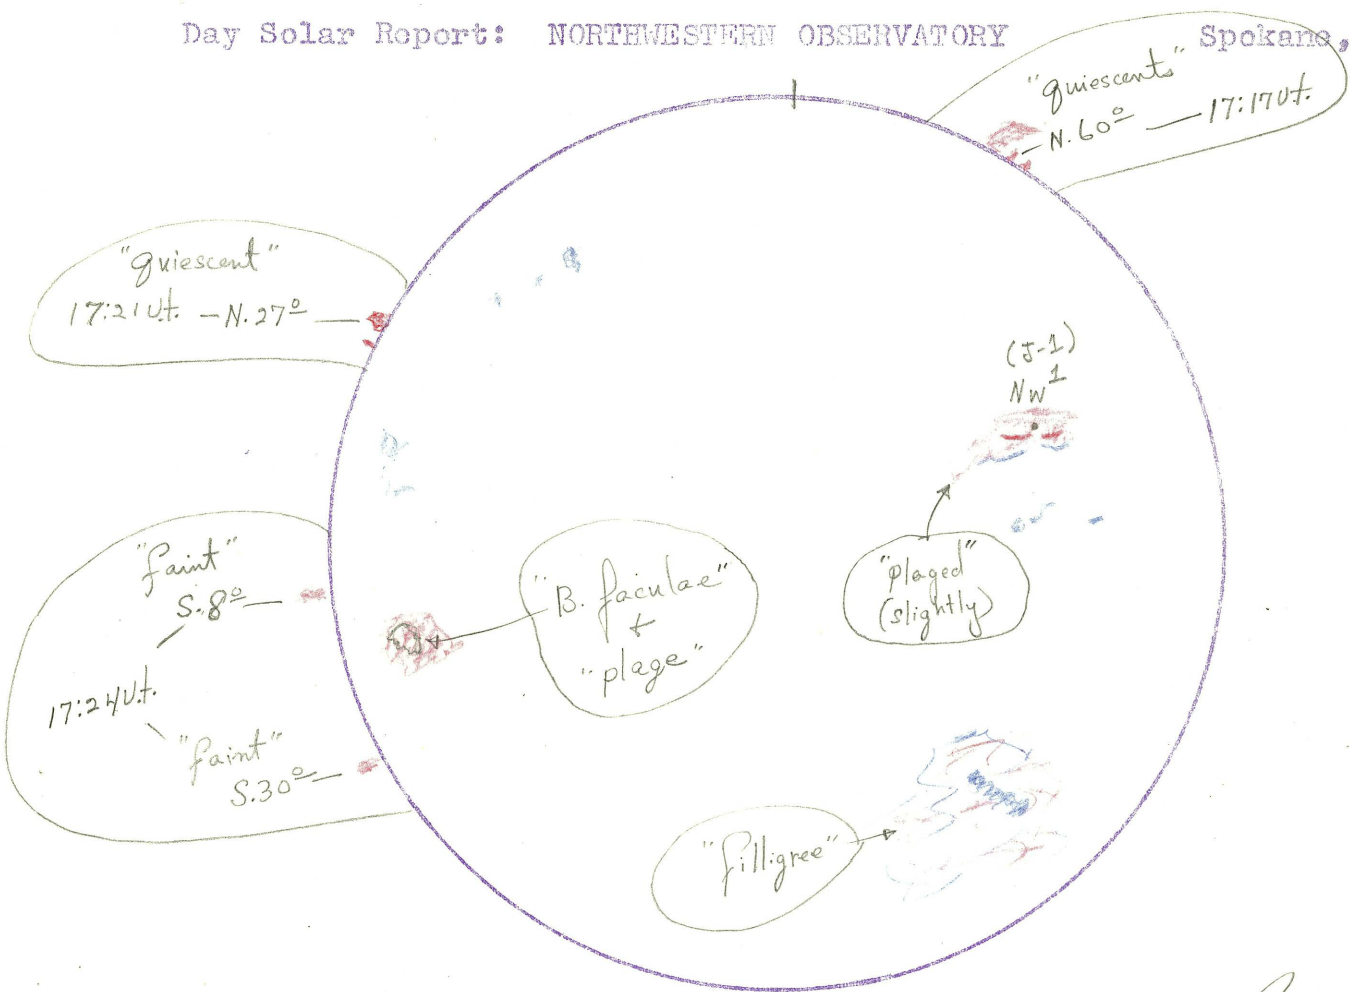 Day Solar Report: NORTHWESTERN OBSERVATORY Spokane,
"quiescents"
N.60º — 17:17 U.t.
"quiescent"
17:21 U.t. — N.27º —
(J-1)
NW 1
"faint"
S.8º —
17:24 U.t.
"faint"
S.30º —
"B. faculae"
+
"plage"
"plaged"
(slightly)
"filligree"